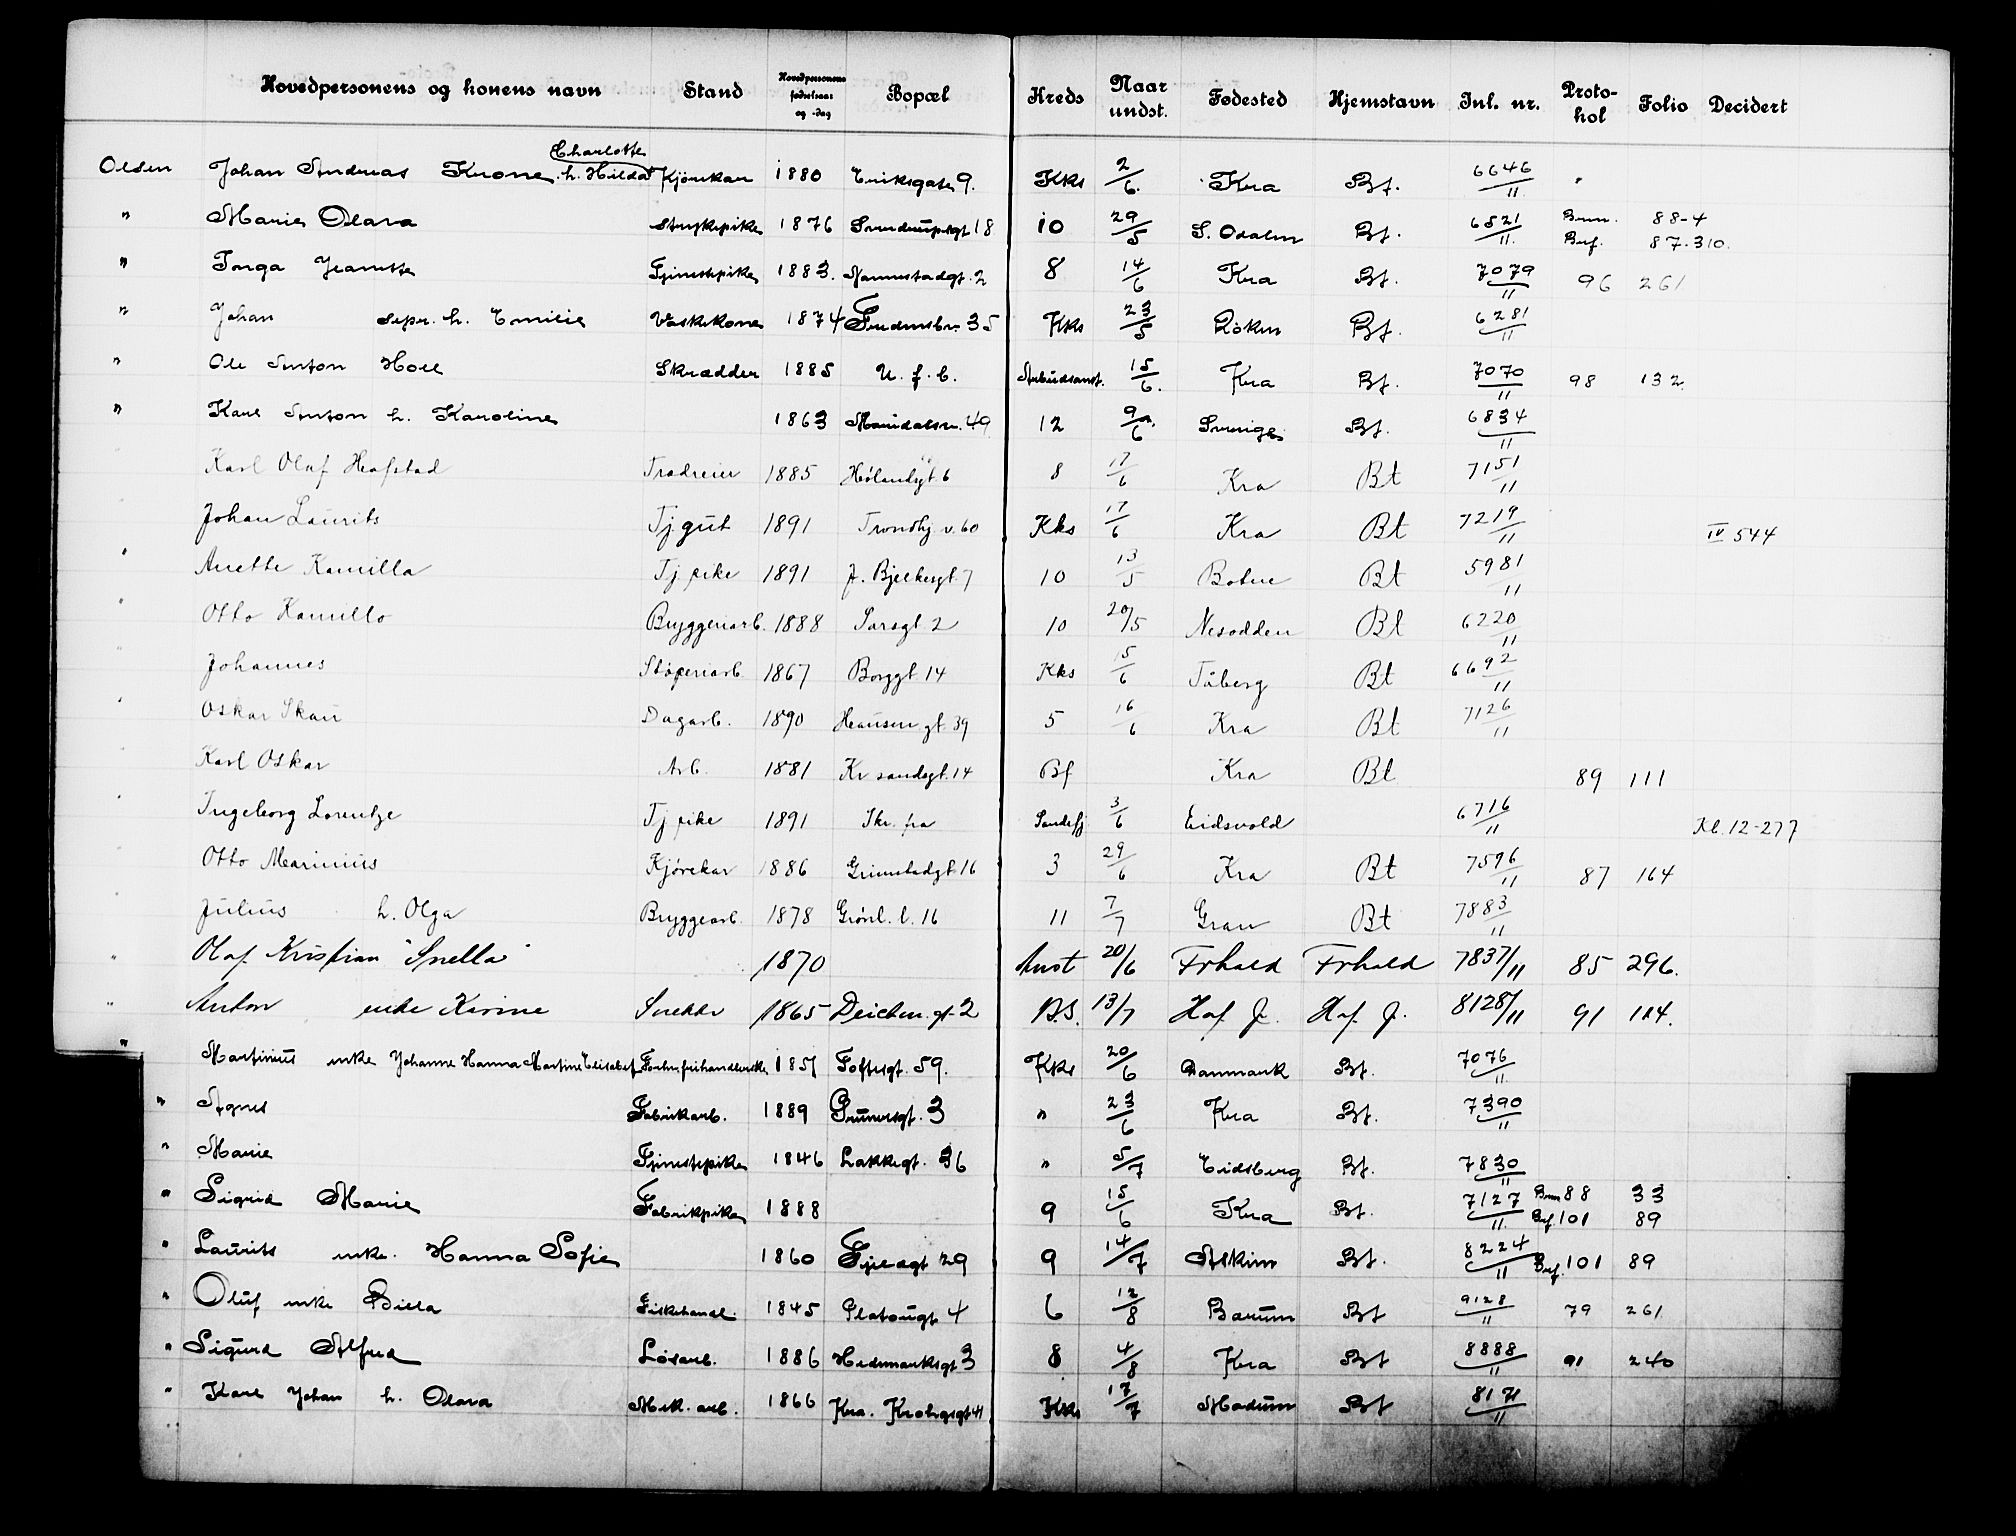 Hovedpersonens og konens navn Stand Hovedpersonens fødselsaar og -dag Bopæl Kreds Naar undst. Fødested Hjemstavn Jnl. nr. Protokol Folio Decidert
Charlotte
Olsen Johan Andreas Krone h. Hilda Kjørekar 1880 Eriksgaten 9. Kks 2/6. Kra Bf. 6646/11 "
" Marie Olava Strykepike 1876 Sverdrupsgt 18 10 29/5 S. Odalen Bf. 6521/11. Brun. 88-4
Bef. 87-310.
" Inga Jeanette Tjenestepike 1883. Nannestadgt. 2 8 14/6 Kra Bf. 7079/11 96 261
" Johan sepr. h. Emilie Vaskekone 1874 Fredensbr. 35 Kks 23/5 Røken Bf. 6281/11
" Ole Anton Holl Skrædder 1885 U. f. b. Arbeidsanst. 15/6. Kra Bf. 7070/11 98 132.
" Karl Anton h. Karoline 1863 Maridalsv. 49 12 9/6 Sverige Bf. 6834/11
Karl Olaf Hafstad Trædreier 1885 Hølandsgt. 6 8 17/6 Kra Bt 7151/11
Johan Laurits Tj. gut 1891 Trondhj. v. 60 Kks 17/6 Kra Bt 7219/11 IV 544
" Anette Kamilla Tj. pike 1891 J. Bjelkesgt. 7 10 13/5 Botne Bt 5981/11
" Otto Kamillo Bryggeriarb. 1888 Sarsgt 2 10 20/5 Nesodden Bt 6220/11
" Johannes Støperiarb 1867 Borggt 14 Kks 15/6 Fåberg Bt 6692/11
" Oskar Skau Dagarb. 1890 Heausen gt. 39 5 16/6 Kra Bt 7126/11
" Karl Oskar Arb. 1881 Kr sandsgt. 14 Bf Kra Bt 89 111
" Ingeborg Lorentze Tj pike 1891 Skr. fra Sandefj 3/6 Eidsvold 6716/11 Kl. 12-277
Otto Marinius Kjørekar 1886 Grimstadgt 16 3 29/6 Kra Bt 7596/11 87 164
" Julius h. Olga Bryggearb. 1878 Grønl. l. 16 11 7/7 Gran Bt 7883/11
" Olaf Kristian "Snella" 1870 Anst 20/6 Frhald Frhald 7837/11 85 296.
" Anton enke Karine Snekker 1865 Deichm. gt. 2 B.S. 13/7 Haf. J. Haf. J. 8128/11 91 114.
" Martinius enke Johanne Hanna Martine Elisabet 1851 Toftesgt. 59. Kks 20/6 Danmark Bt. 7076/11.
" Agnes Fabrikarb. 1889 Grünersgt. 3 " 23/6 Kra Bt. 7390/11
" Marie Tjenestepike 1846 Lakkegt. 36 " 5/7 Eidsberg Bt. 7830/11
" Sigrid Marie Fabrikpike 1888 9 15/6 Kra Bt. 7127/11 Brun 88 33
Bef. 101 89
" Laurits enke. Hanna Sofie 1860 Fjeldgt 29 9 14/7 Askim Bt. 8224/11 Bef. 101 89
" Oluf enke Billa Fiskehandl. 1845 Platougt 4 6 12/8 Bærum Bt 9128/11 79 261
" Sigurd Alfred Løsarb. 1886 Hedemarksgt 3 8 4/8 Kra Bt 8888/11 91 240
" Karl Johan h. Olava Mek. arb. 1866 Kra. Krohgsgt 41 Kks 17/7 Modum Bt 8171/11